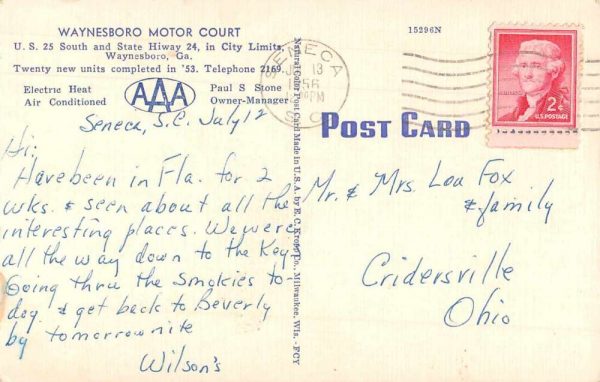 WAYNESBORO MOTOR COURT
U. S. 25 South and State Hiway 24, in City Limits,
Waynesboro, Ga.
Twenty new units completed in '53. Telephone 2169.
Electric Heat
Air Conditioned
AAA
Paul S Stone
Owner-Manager
Seneca, S.C. July 12
Hi:
Have been in Fla. for 2
wks. & seen about all the
interesting places. We were
all the way down to the Key-
Going thru the Smokies to-
day & get back to Beverly
by tomorrownite
Wilson's
Natural Color Post Card Made in U.S.A. by E. C. Kropp Co., Milwaukee, Wis. -FCY
15296N
SENECA
13
PM
S.C.
POST CARD
2¢
U.S. POSTAGE
Mr. & Mrs. Loa Fox
& family
Cridersville
Ohio